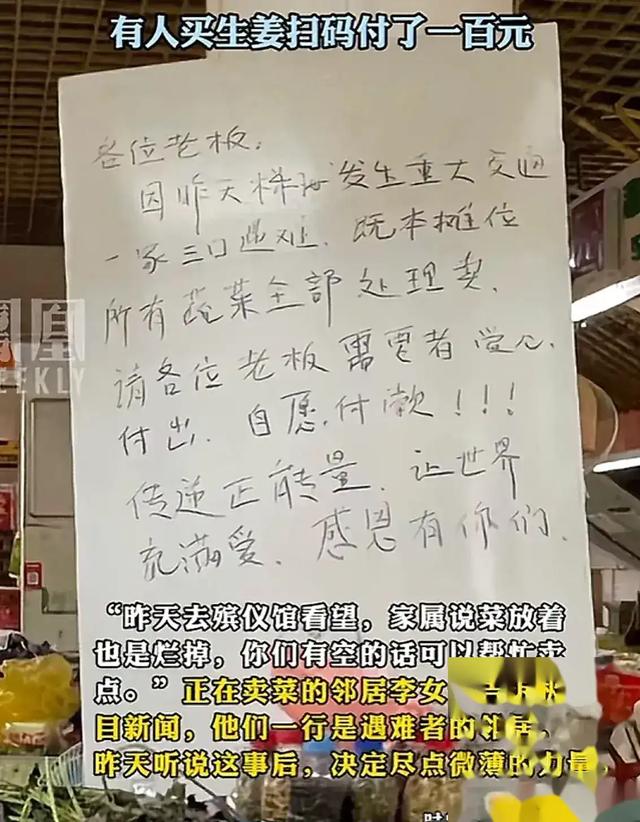 有人买生姜扫码付了一百元
各位老板:
因昨天梯面发生重大交通
一家三口遇难. 既本摊位
所有蔬菜全部处理卖.
请各位老板需要者爱心.
付出. 自愿.付款!!!
传递正能量. 让世界
充满爱. 感恩有你们.
凰
EEKLY
“昨天去殡仪馆看望,家属说菜放着
也是烂掉,你们有空的话可以帮忙卖
点。”正在卖菜的邻居李女
目新闻,他们一行是遇难者的邻居,
昨天听说这事后,决定尽点微薄的力量,